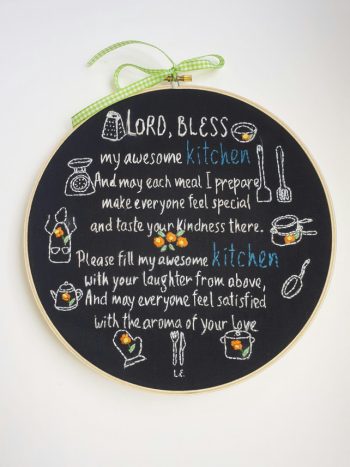 LORD, BLESS
my awesome kitchen
And may each meal I prepare
make everyone feel special
and taste your kindness there.
Please fill my awesome kitchen
with your laughter from above,
And may everyone feel satisfied
with the aroma of your love
L.E.